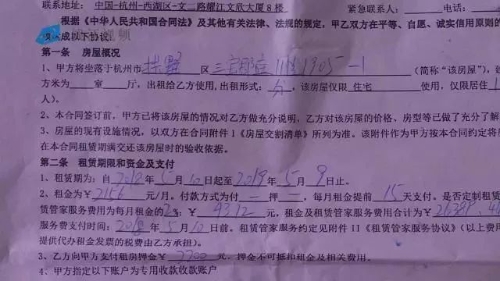 联系地址： 中国-杭州-西湖区-文二路耀江文欣大厦 8 楼 紧急联系人： 电话：
根据《中华人民共和国合同法》及其他有关法律、法规的规定，甲乙双方在平等、自愿、诚实信用原则的
成以下协议
第一条 房屋概况
1、甲方将坐落于杭州市 拱墅 区 1905-1 （简称“该房屋”），
方米为 室 厅，出租给乙方使用，出租形式： 分 ，该房屋仅限 住宅 使用，仅限居住 1
人）。
2、本合同签订前，甲方已将该房屋的情况对乙方做充分说明，乙方对该房屋的价格、房型等已做了充分了解
3、房屋的现有设施情况，以双方在合同附件 I《房屋交割清单》所列为准。该附件作为甲方按本合同约定将
在本合同租赁期满交还该房屋时的验收依据。
第二条 租赁期限和资金及支付
1、租赁期为：自 2018 年 5 月 10 日起至 2019 年 5 月 9 日止。
2、租金为￥ 2156 元/月。付款方式为付 一 押 二 ，每月租金提前 15 天支付。是否定制租赁
赁管家服务费用为每月租金的 ￥ 4312 元，租金及租赁管家服务费用合计为￥
服务费支付时间： 2018 年 5 月 10 日前。租赁管家服务约定见附件 II《租赁管家服务协议》（以上费用
提供代办租金发票的税费由乙方承担）。
3、乙方向甲方支付租房押金￥ 2200 元，押金不可抵扣租金及相关费用。
4、甲方指定以下账户为专用收款收款账户